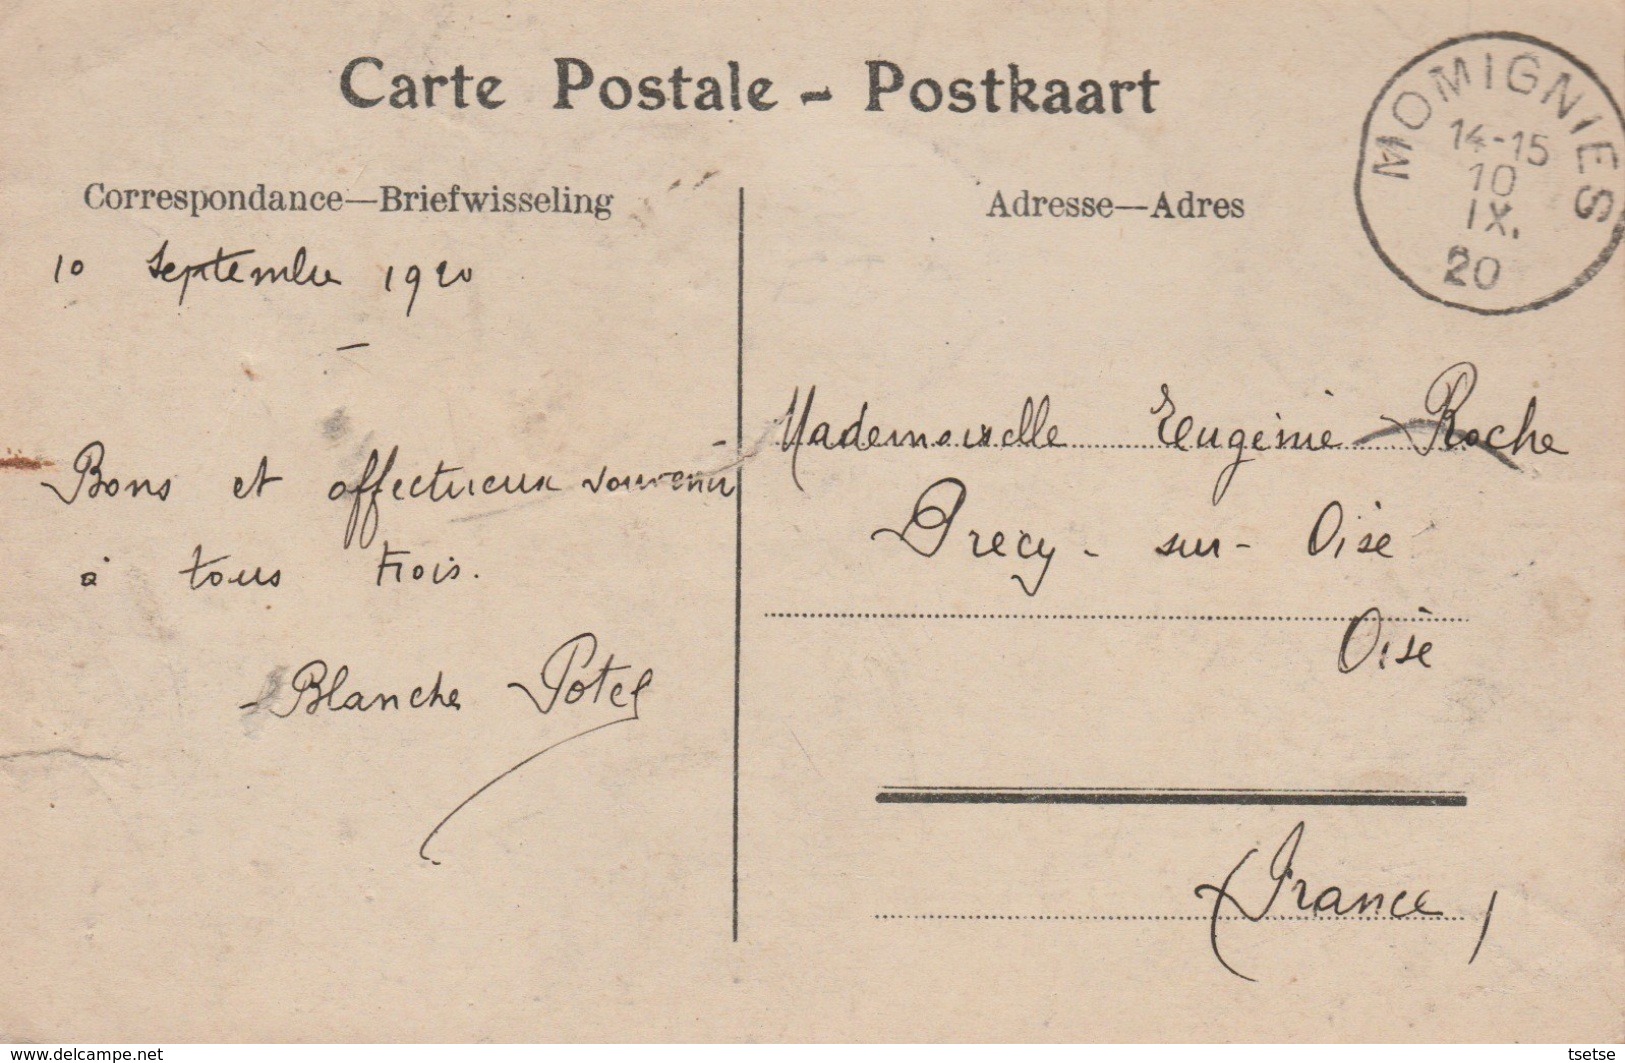 Carte Postale - Postkaart
MOMIGNIES
14-15
10
IX.
20
Correspondance—Briefwisseling
10 Septembre 1920
Bons et affectueux souvenir
à tous trois.
Blanche Potel
Adresse—Adres
Mademoiselle Eugénie Roche
Precy-sur-Oise
Oise
(France)
www.delcampe.net
tsetse